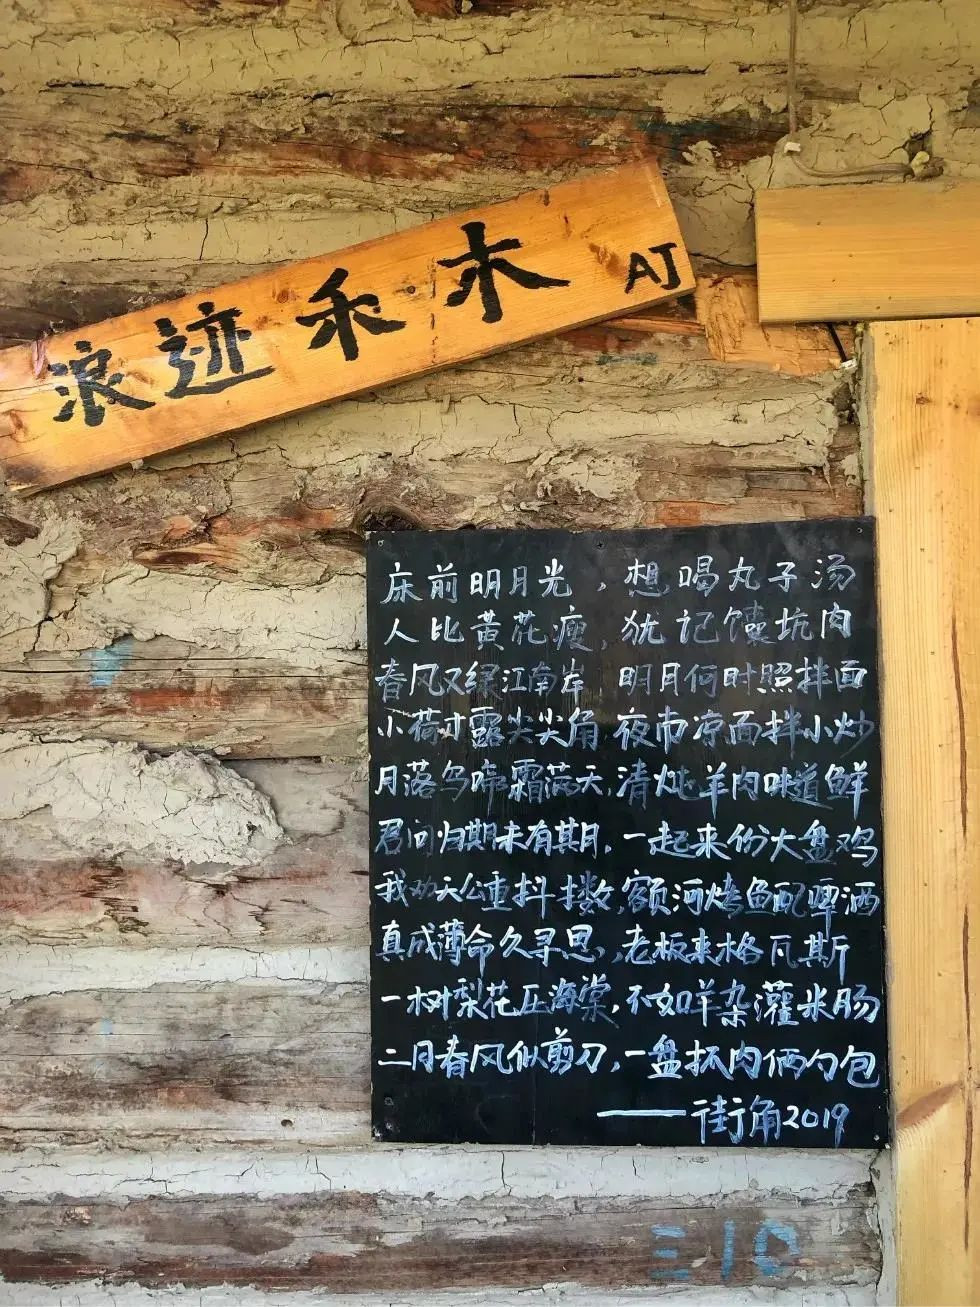 浪迹禾木 AJ
床前明月光，想喝丸子汤
人比黄花瘦，犹记馕坑肉
春风又绿江南岸 明月何时照拌面
小荷才露尖尖角 夜市凉面拌小炒
月落乌啼霜满天，清炖羊肉味道鲜
君问归期未有期，一起来份大盘鸡
我劝天公重抖擞，额河烤鱼配啤酒
真成薄命久寻思，老板来格瓦斯
一树梨花压海棠，不如羊杂灌米肠
二月春风似剪刀，一盘抓肉俩勺包
——街角2019
310